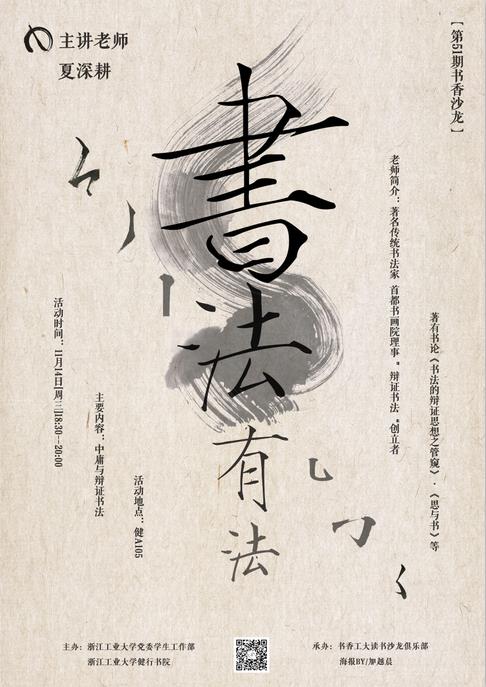 【第51期书香沙龙】
主讲老师
夏深耕
書法有法
老师简介：著名传统书法家 首都书画院理事“辩证书法”创立者
著有书论《书法的辩证思想之管窥》、《思与书》等
活动时间：11月14日[周三]18:30—20:00
主要内容：中庸与辩证书法
活动地点：健A105
主办：浙江工业大学党委学生工作部
浙江工业大学健行书院
承办：书香工大读书沙龙俱乐部
海报BY/加越晨